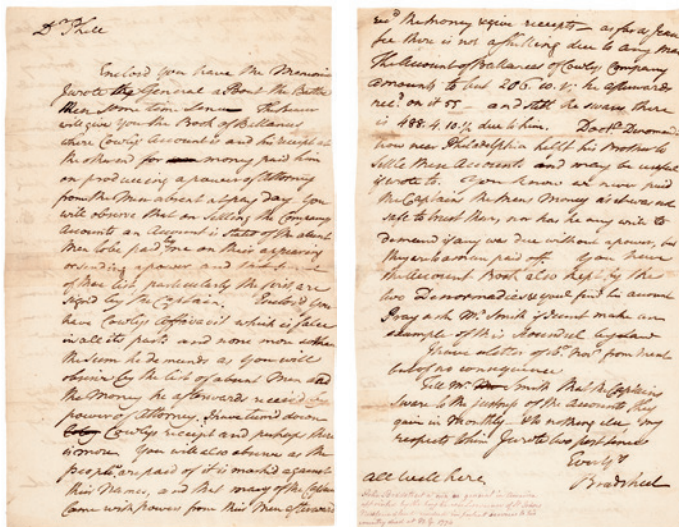 Dr Phill
Enclosed you have the Memorial
I wrote the General about the Batteau
Men some time since The Bearer
will give you the Book of Ballances
where Cowlys Account is and his receipt at
the other end for money paid him
on produceing a power of Attorney
from the Men absent at pay day. You
will observe that on settling the Company
Accounts an Account is stated of the absent
Men to be paid by me on their appearing
or sending a power and
of these list, particularly the first are
signed by the Captain. Inclosed you
have Cowlys Affidavit which is false
in all its parts and none more so than
the sum he demands as you will
observe by the list of absent Men and
the Money he afterwards received by
power of Attorney. I have turn'd down
Cowlys receipt and perhaps there
is more. You will also observe as the
people are paid of it is marked against
their Names, and that many of the Captains
came with powers from their Men afterwards
recd the money & give receipts — as far as I can
see there is not a shilling due to any man
The Account of Ballances of Cowlys Company
amounts to but 206.10. he afterwards
recd on it 55 — and still he swears there
is 488.4.10½ due to him. Doctr
now near Philadelphia help't his Brother to
settle these Accounts and may be useful
if wrote to. You know we never paid
the Captains the Mens Money as it was not
safe to trust them, nor has he any right to
demand if any was due without a power, but
they are paid off. You have
the Account Book also kept by the
two & you'l find his account
Pray ask Mr. Smith if I cant make an
example of this Scoundrel by law
I have a letter of 5. Novr from
but of no consequence
Tell Mr. Smith that the Captains
swear to the justness of the Accounts they
gave in Monthly — & to nothing else, my
respects to him I wrote two posts since
Every
Bradstreet
all well here